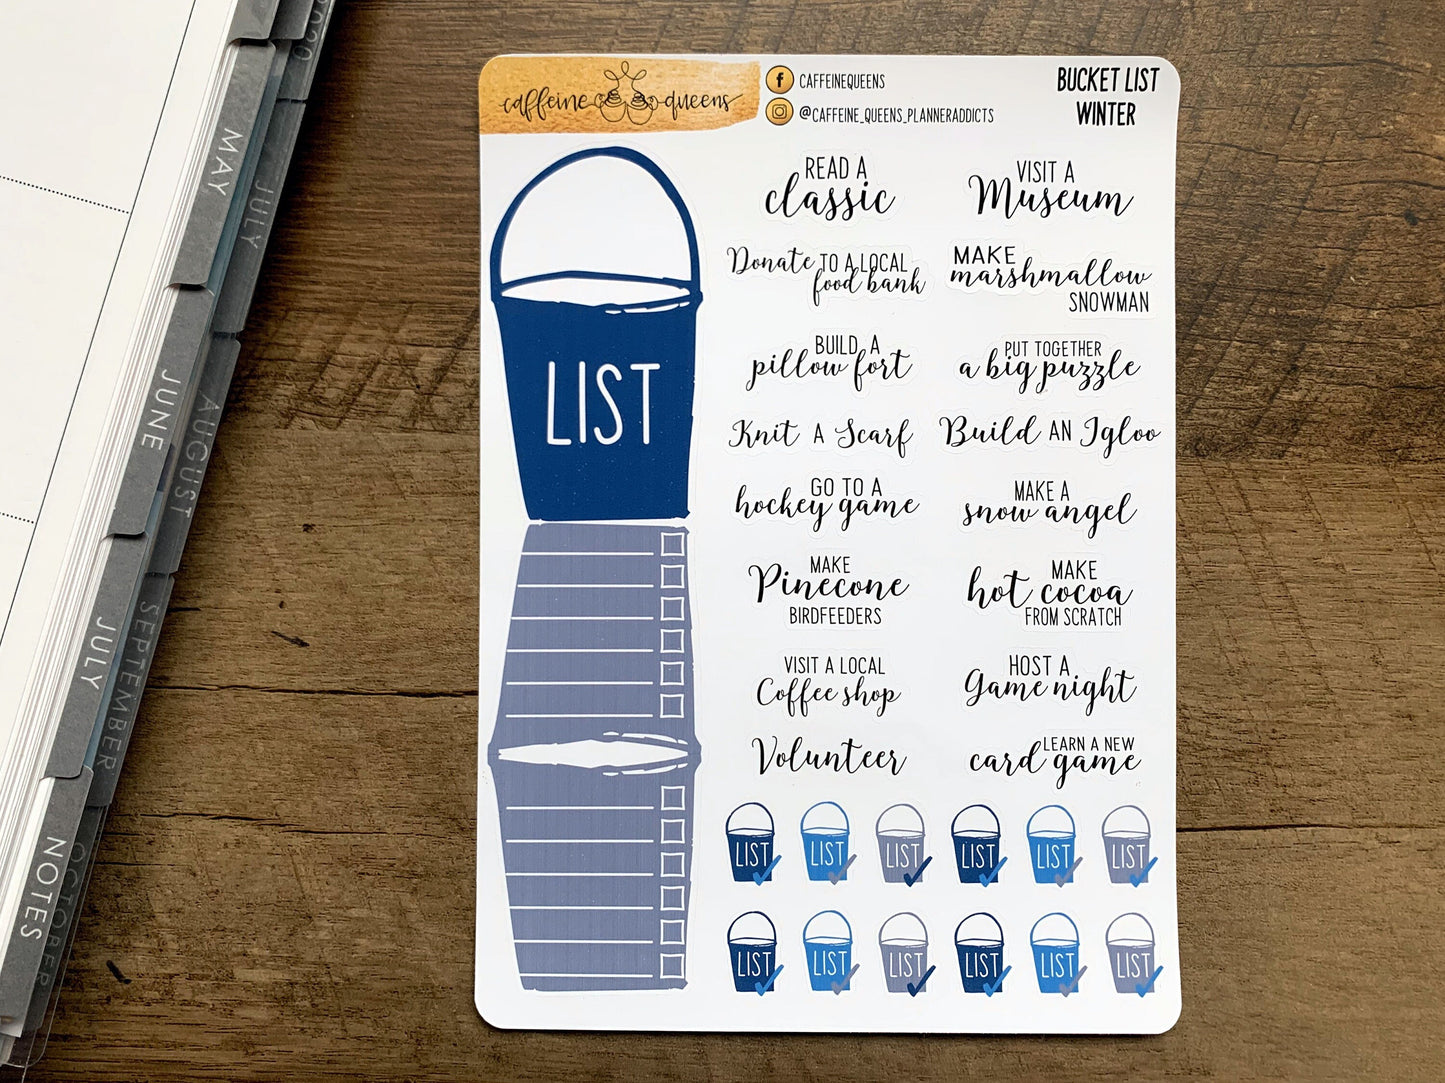 2020
MAY
JULY
JUNE
AUGUST
JULY
SEPTEMBER
NOTES
OCTOBER
caffeine queens
CAFFEINEQUEENS
@CAFFEINE_QUEENS_PLANNERADDICTS
BUCKET LIST
WINTER
LIST
READ A
classic
VISIT A
Museum
Donate TO A LOCAL
food bank
MAKE
marshmallow
SNOWMAN
BUILD A
pillow fort
PUT TOGETHER
a big puzzle
Knit A Scarf
Build AN Igloo
GO TO A
hockey game
MAKE A
snow angel
MAKE
Pinecone
BIRDFEEDERS
MAKE
hot cocoa
FROM SCRATCH
VISIT A LOCAL
Coffee shop
HOST A
Game night
Volunteer
LEARN A NEW
card game
LIST LIST LIST LIST LIST LIST
LIST LIST LIST LIST LIST LIST